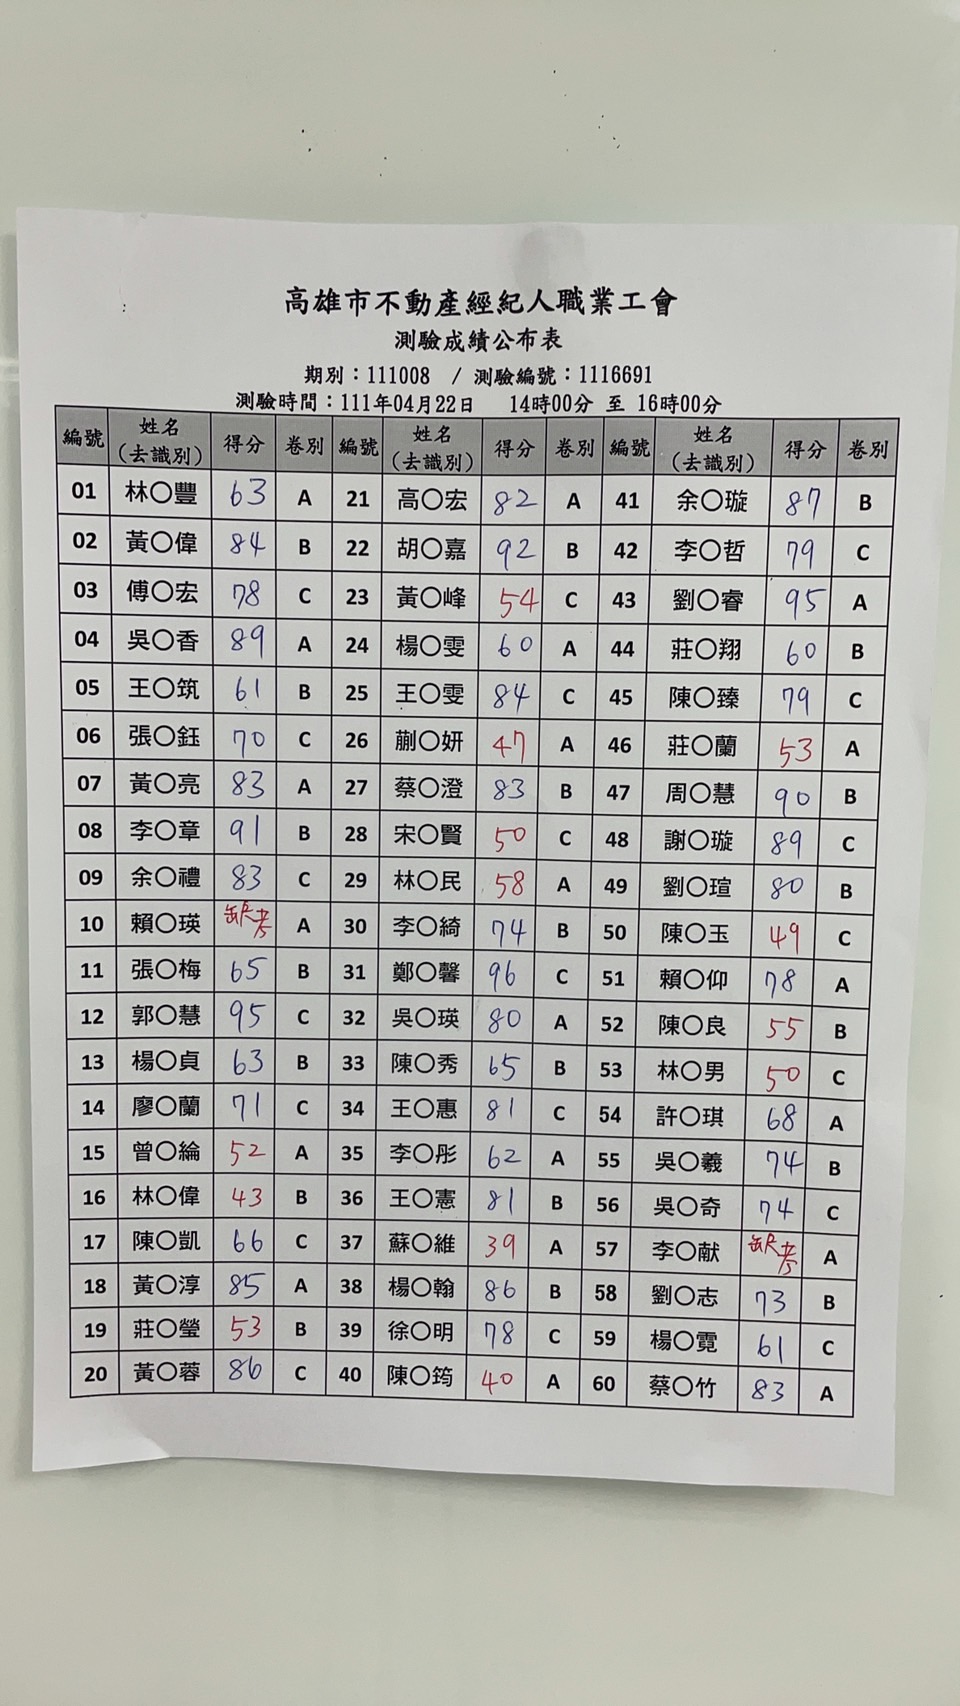 高雄市不動產經紀人職業工會
測驗成績公布表
期別：111008 / 測驗編號：1116691
測驗時間：111年04月22日 14時00分 至 16時00分
編號 姓名（去識別） 得分 卷別 編號 姓名（去識別） 得分 卷別 編號 姓名（去識別） 得分 卷別
01 林〇豐 63 A 21 高〇宏 82 A 41 余〇璇 87 B
02 黃〇偉 84 B 22 胡〇嘉 92 B 42 李〇哲 79 C
03 傅〇宏 78 C 23 黃〇峰 54 C 43 劉〇睿 95 A
04 吳〇香 89 A 24 楊〇雯 60 A 44 莊〇翔 60 B
05 王〇筑 61 B 25 王〇雯 84 C 45 陳〇臻 79 C
06 張〇鈺 70 C 26 蒯〇妍 47 A 46 莊〇蘭 53 A
07 黃〇亮 83 A 27 蔡〇澄 83 B 47 周〇慧 90 B
08 李〇章 91 B 28 宋〇賢 50 C 48 謝〇璇 89 C
09 余〇禮 83 C 29 林〇民 58 A 49 劉〇瑄 80 B
10 賴〇瑛 缺考 A 30 李〇綺 74 B 50 陳〇玉 49 C
11 張〇梅 65 B 31 鄭〇馨 96 C 51 賴〇仰 78 A
12 郭〇慧 95 C 32 吳〇瑛 80 A 52 陳〇良 55 B
13 楊〇貞 63 B 33 陳〇秀 65 B 53 林〇男 50 C
14 廖〇蘭 71 C 34 王〇惠 81 C 54 許〇琪 68 A
15 曾〇綸 52 A 35 李〇彤 62 A 55 吳〇羲 74 B
16 林〇偉 43 B 36 王〇憲 81 B 56 吳〇奇 74 C
17 陳〇凱 66 C 37 蘇〇維 39 A 57 李〇献 缺考 A
18 黃〇淳 85 A 38 楊〇翰 86 B 58 劉〇志 73 B
19 莊〇瑩 53 B 39 徐〇明 78 C 59 楊〇霓 61 C
20 黃〇蓉 86 C 40 陳〇筠 40 A 60 蔡〇竹 83 A